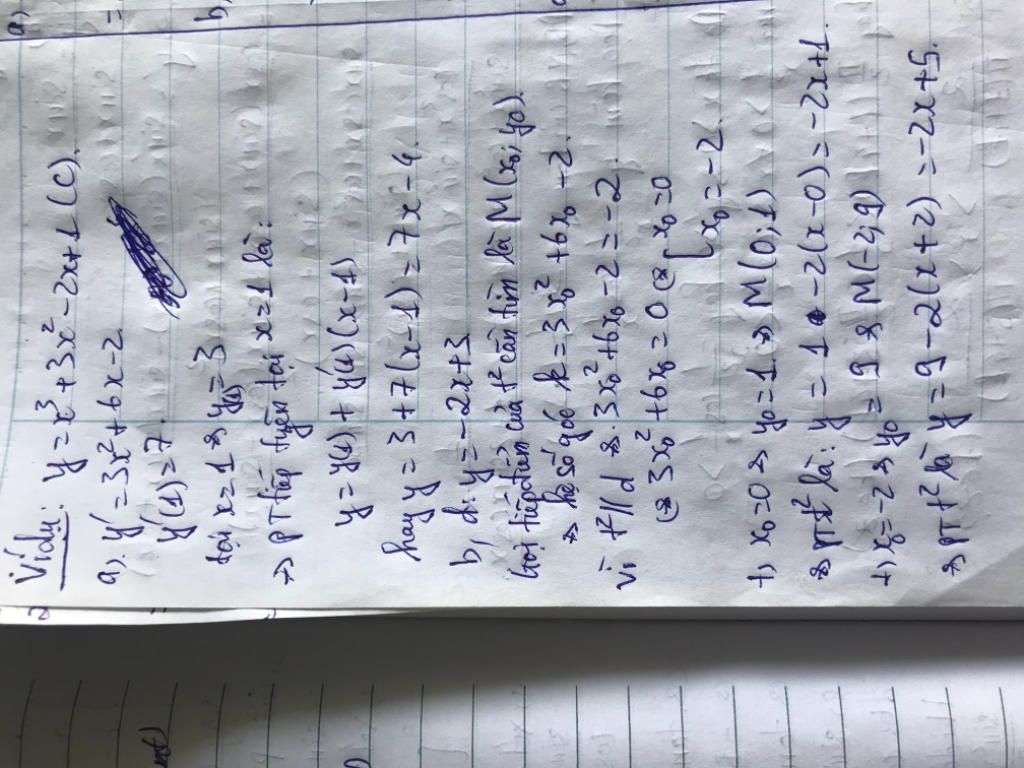 Ví dụ: y = x³ + 3x² - 2x + 1 (C).
a). y' = 3x² + 6x - 2
y'(1) = 7.
tại x = 1 ⇒ y(1) = 3
→ PT tiếp tuyến tại x = 1 là:
y = y(1) + y'(1)(x - 1)
hay y = 3 + 7(x - 1) = 7x - 4.
b, d: y = -2x + 3
Gọi tiếp điểm của t² cần tìm là M(x₀; y₀).
⇒ hệ số góc k = 3x₀² + 6x₀ - 2.
Vì t² // d ⇒ 3x₀² + 6x₀ - 2 = -2.
⇔ 3x₀² + 6x₀ = 0 ⇔ [ x₀ = 0
x₀ = -2.
+, x₀ = 0 ⇒ y₀ = 1 ⇒ M(0; 1)
⇒ PTt² là: y = 1 - 2(x - 0) = -2x + 1.
+, x₀ = -2 ⇒ y₀ = 9 ⇒ M(-2; 9)
⇒ PT t² là y = 9 - 2(x + 2) = -2x + 5.
a)
=
b,